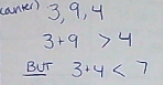 counter) 3, 9, 4
3+9 > 4
BUT 3+4 < 7